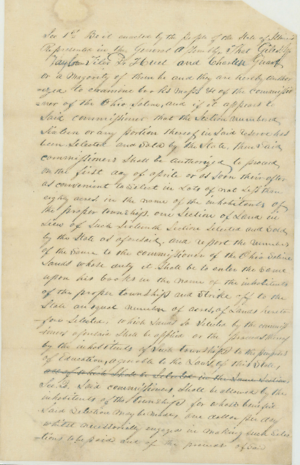 Sec 1st Be it enacted by the People of the State of Illinois
represented in the General Assembly That Giles
Taylor and Charles
or a majority of them be and they are hereby author
ized to examine books maps &c of the commissio
ner of the Ohio Saline, and if it appears to
said commissioner that the Section numbered
Sixteen or any portion thereof in said reserve has
been Selected and sold by the State then said
commissioners shall be authorized to proceed
on the first day of april or as soon thereafter
as convenient to select in Lots of not less than
eighty acres, in the name of the inhabitants of
the proper township one Section of Land in
lieu of such Sixteenth Section Selected and sold
by the State as aforesaid, and report the numbers
of the same to the commissioner of the Ohio Saline
Lands whose duty it shall be to enter the same
upon his books in the name of the inhabitants
of the proper townships and strike off to the
State an equal number of acres of Lands hereto
fore Selected. Which Lands So Selected by the commis
sioners aforesaid shall be applied or the
by the inhabitants of Said townships to the purposes
of Education, agreeable to the Laws of this State,
Sec 2. Said commissioners shall be allowed by the
inhabitants of the townships for whose benefit
Said Selection may be made one dollar per day
while necessarily engaged in making such selec
tions to be paid out of the